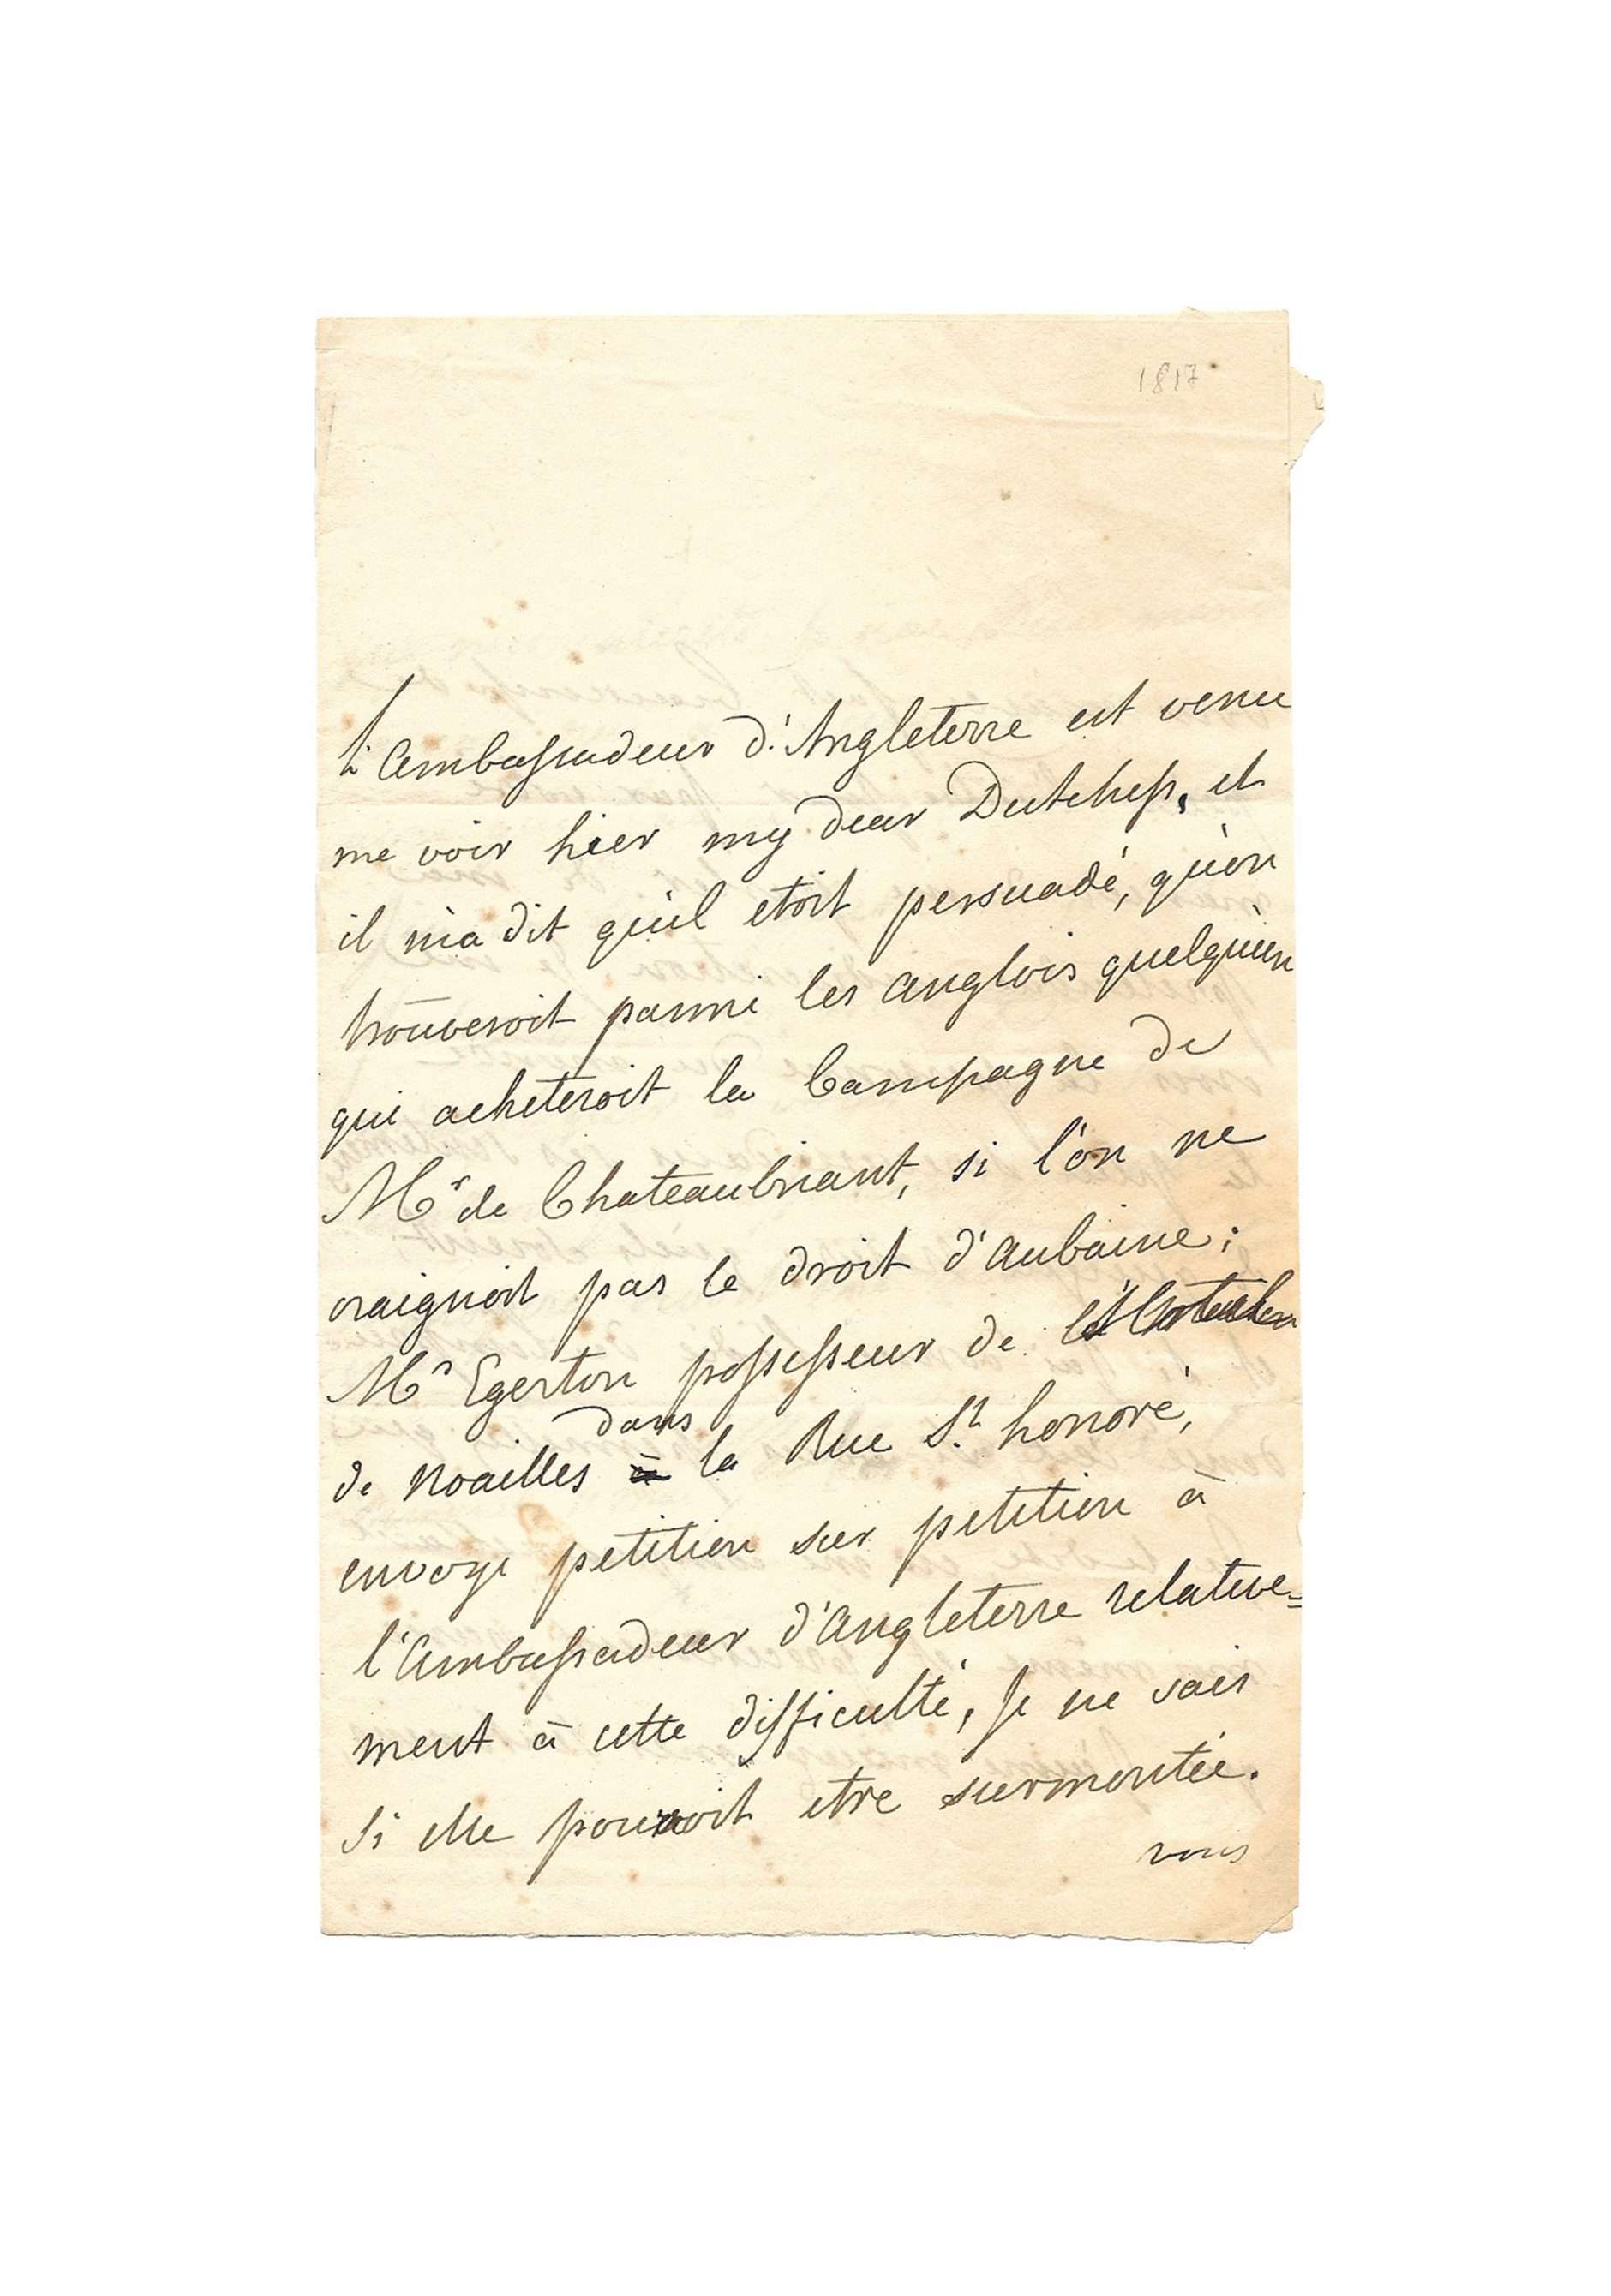 1817
L'ambassadeur d'Angleterre est venu
me voir hier my dear Dutchess, et
il m'a dit qu'il etoit persuadé, qu'on
trouveroit parmi les anglois quelqu'un
qui acheteroit la Campagne de
Mr de Chateaubriant, si l'on ne
craignoit pas le droit d'aubaine;
Mr Egerton possesseur de l'hotel
de Noailles dans la Rue St. honoré,
envoye petition sur petition à
l'ambassadeur d'angleterre relative=
ment à cette difficulté, je ne sais
si elle pourroit etre surmontée.
vous